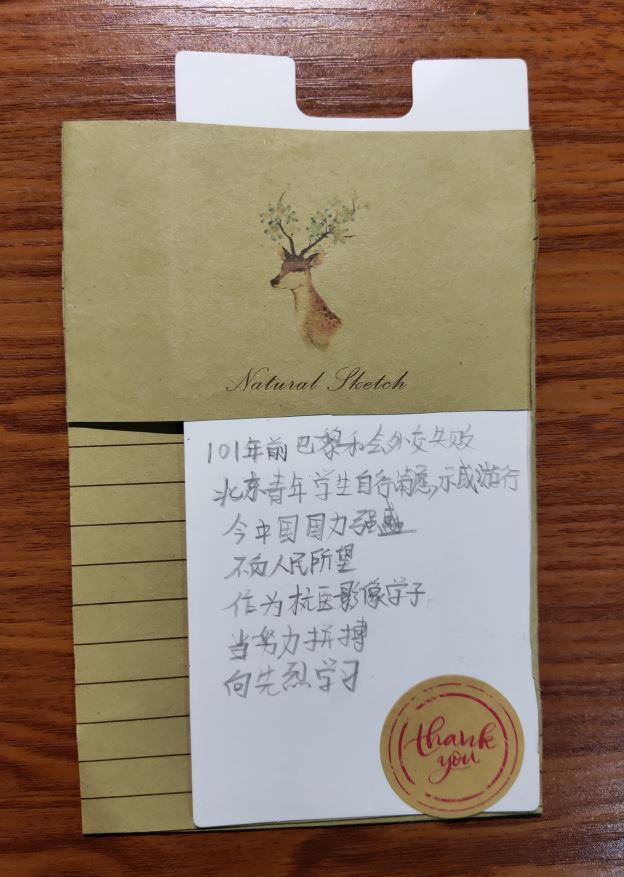 Natural Sketch
101年前巴黎和会外交失败
北京青年学生自行请愿,示威游行
今中国国力强盛
不向人民所望
作为抗医影像学子
当努力拼搏
向先烈学习
thank
you